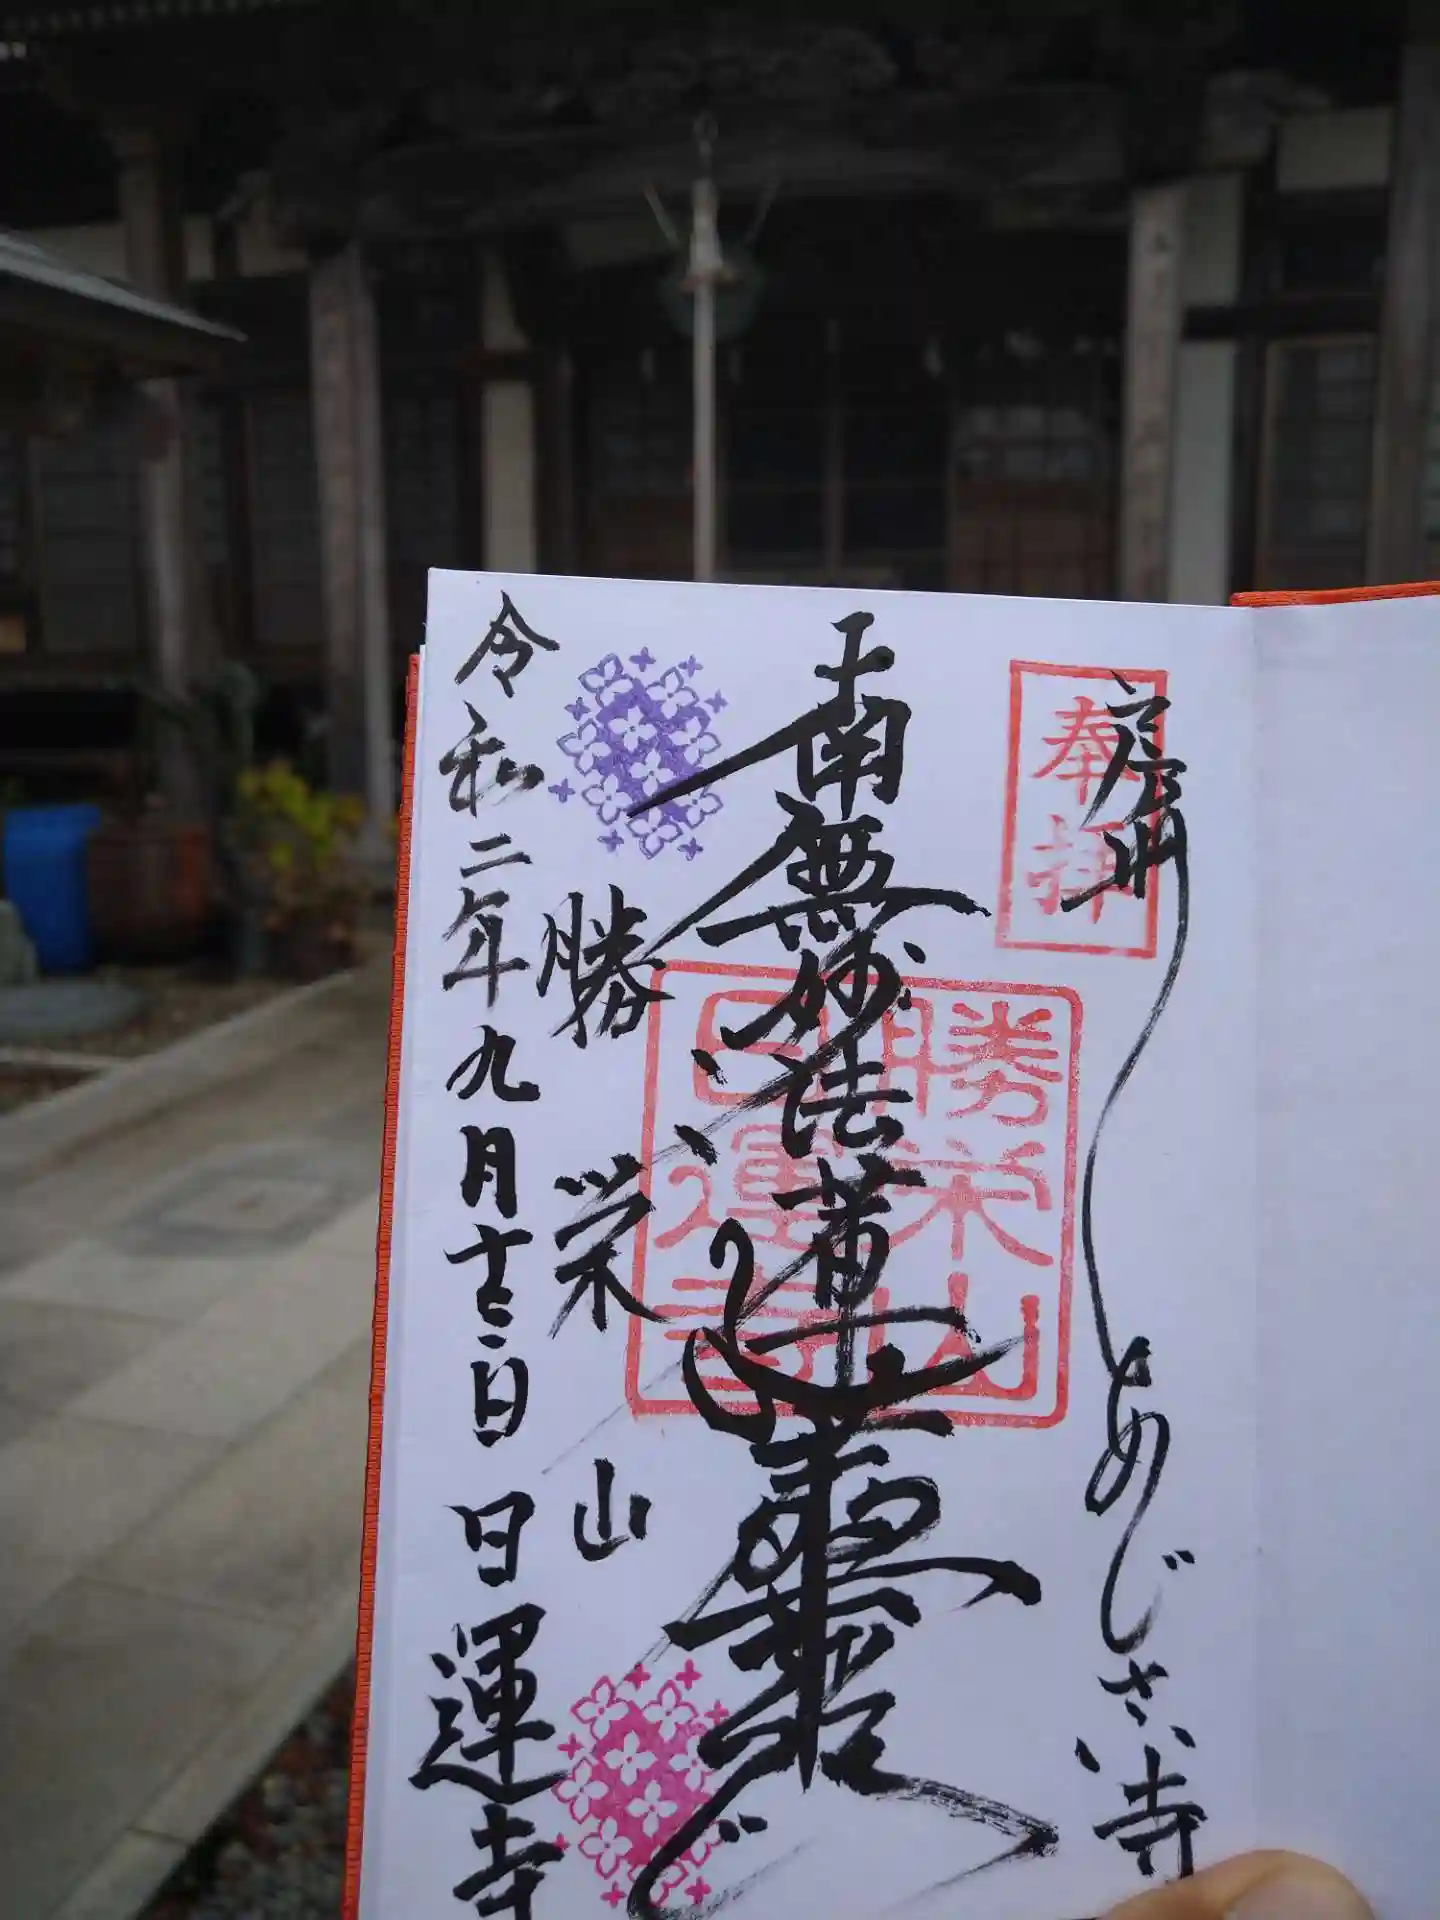 奉拝
房州
あじさい寺
南無妙法蓮華経
勝栄山
日運寺
勝栄山
令和二年九月十三日
日運寺